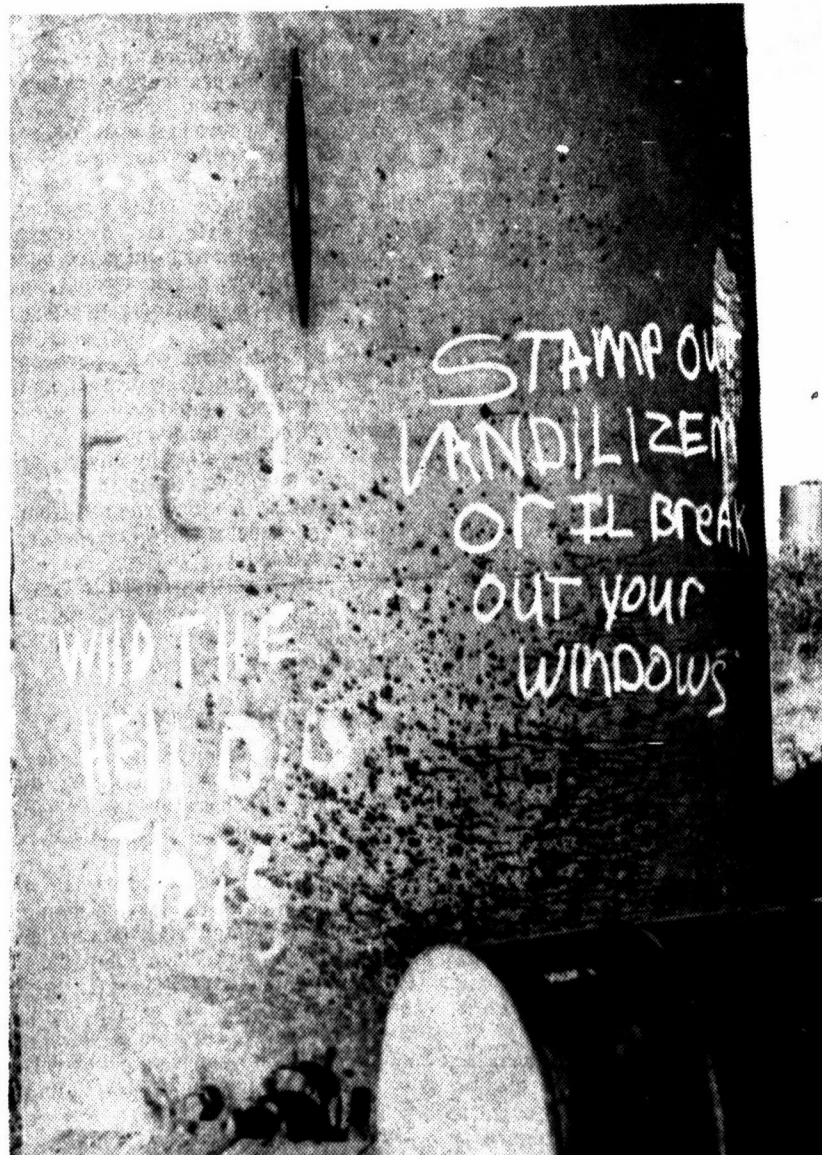 STAMP OUT
VANDILIZEM
Or IL BreAK
OUT your
WINDOWS
WHO THE
HEll DID
This